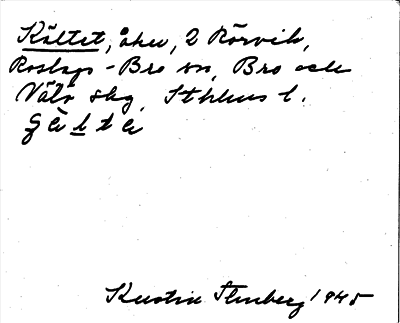 Kältet, åker, 2 Rörvik,
Roslags-Bro sn, Bro och
Vätö skg, Sthlms l.
Kerstin Stenberg 1945